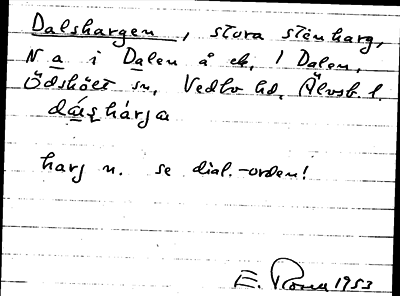 Dalshargen, stora stenharg,
N a i Dalen å ek. I Dalen,
Ödskölt sn, Vedbo hd, Älvsb. l.
dáʂhárja
harj n. se dial.-orden!
E. 1953